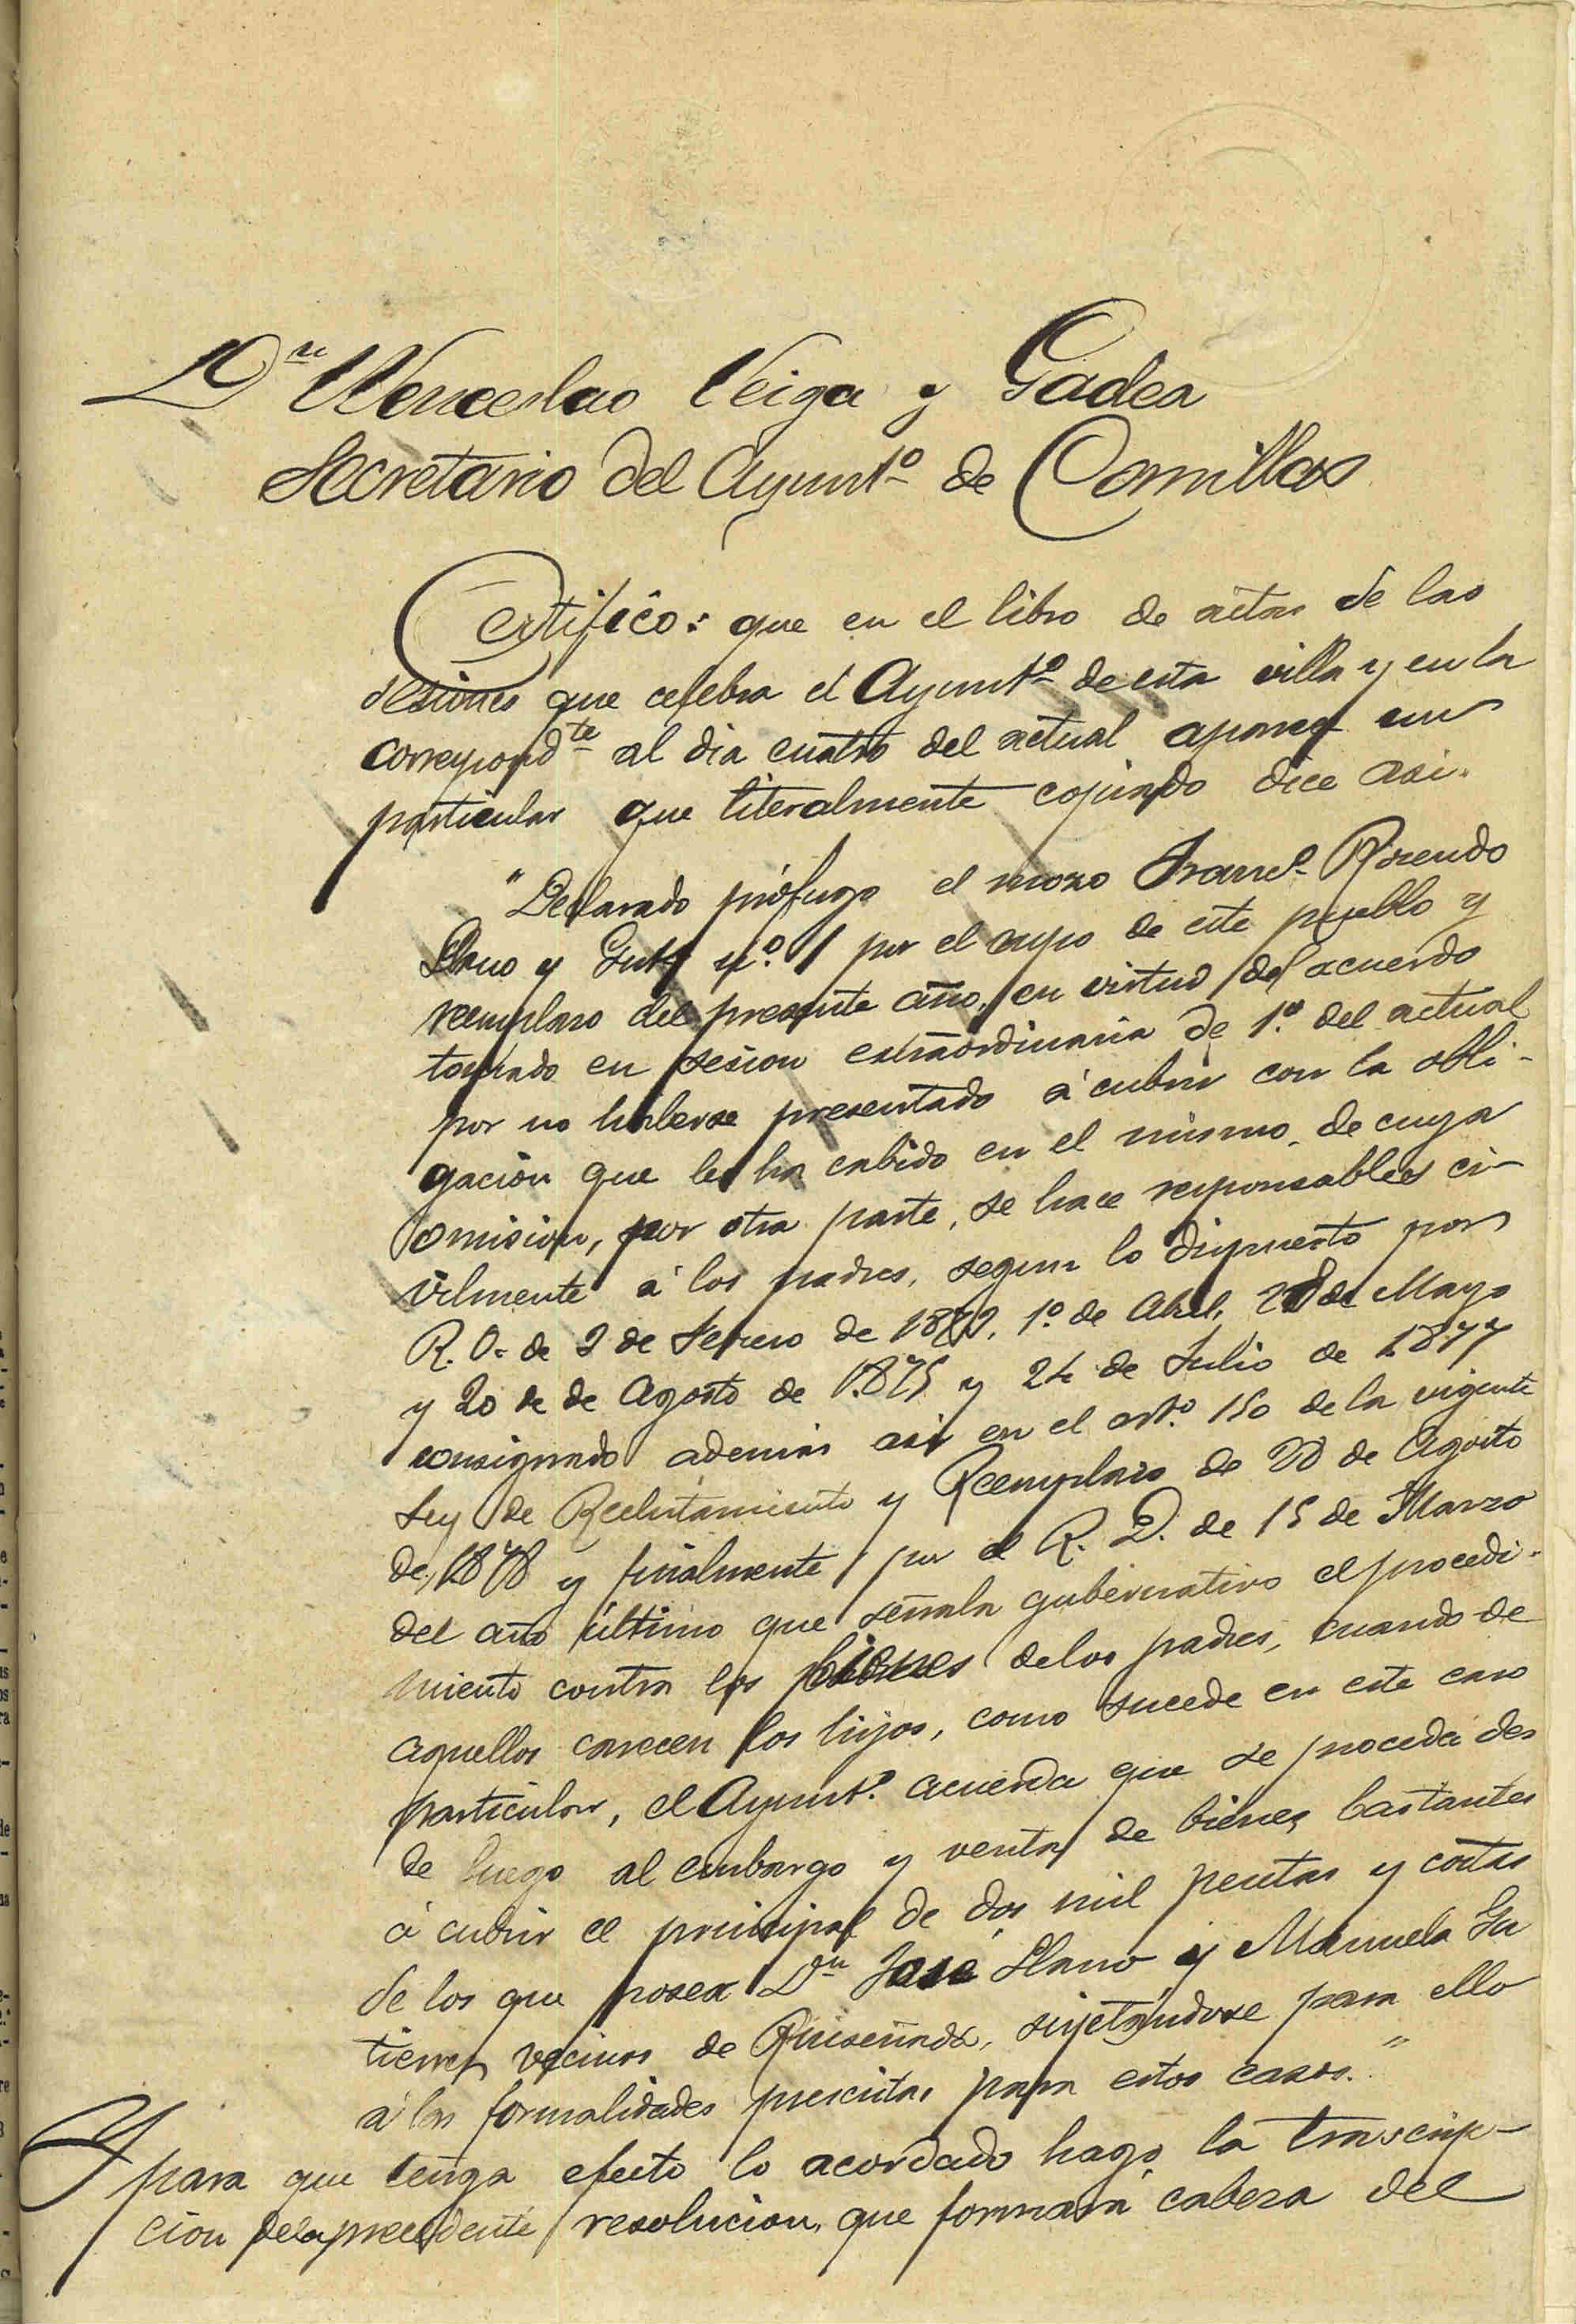 Dn Wenceslao Veiga y Gadea
Secretario del Ayuntº de Comillas
Certifico: que en el libro de actas de las
sesiones que celebra el Ayuntº de esta villa y en la
correspondte al dia cuatro del actual aparece un
particular que literalmente copiado dice asi.
"Declarado prófugo el mozo Francº Rosendo
Llano y Gutz nº 1 por el cupo de este pueblo y
reemplazo del presente año, en virtud del acuerdo
tomado en sesion extraordinaria de 1º del actual
por no haberse presentado á cubrir con la obli-
gación que le ha cabido en el mismo, de cuya
omision, por otra parte, se hace responsables ci-
vilmente á los padres, segun lo dispuesto por
R. O. de 2 de Febrero de 1872, 1º de Abril, 28 de Mayo
y 20 de de Agosto de 1875 y 24 de Julio de 1877
consignado además asi en el artº 150 de la vigente
Ley de Reclutamiento y Reemplazo de 28 de Agosto
de 1878 y finalmente por el R. D. de 15 de Marzo
del año último que señala gubernativo el procedi-
miento contra los bienes de los padres, cuando de
aquellos carecen los hijos, como sucede en este caso
particular, el Ayuntº acuerda que se proceda des
de luego al embargo y venta de bienes bastantes
á cubrir el principal de dos mil pesetas y costas
de los que posea Dn José Llano y Manuela Gu
tierrez vecinos de Ruiseñada, sujetándose para ello
á las formalidades prescritas para estos casos."
Y para que tenga efecto lo acordado hago la transcrip-
cion de la precedente resolucion, que formará cabeza del